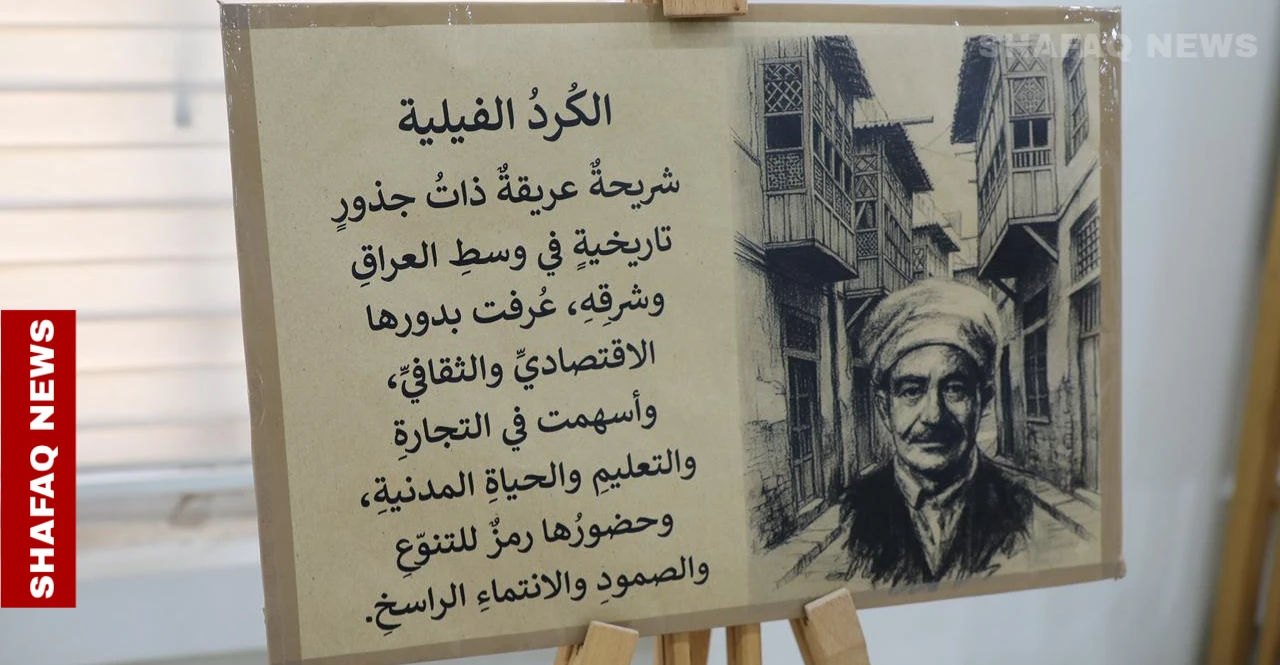 SHAFAQ NEWS
الكُردُ الفيلية
شريحةٌ عريقةٌ ذاتُ جذورٍ
تاريخيةٍ في وسطِ العراقِ
وشرقِهِ، عُرفت بدورها
الاقتصاديِّ والثقافيِّ،
وأسهمت في التجارةِ
والتعليمِ والحياةِ المدنيةِ،
وحضورُها رمزٌ للتنوّعِ
والصمودِ والانتماءِ الراسخِ.
SHAFAQ NEWS